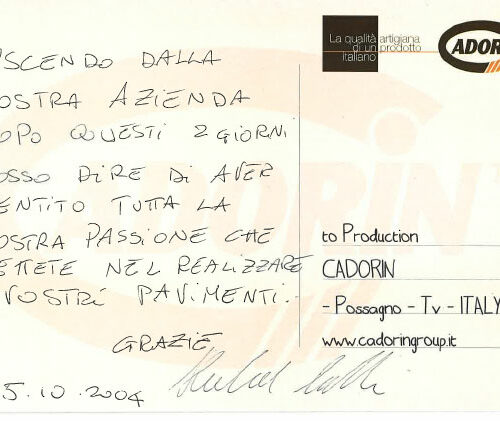 SCENDO DALLA
OSTRA AZIENDA
OPO QUESTI 2 GIORNI
OSSO DIRE DI AVER
ENTITO TUTTA LA
OSTRA PASSIONE CHE
ETTETE NEL REALIZZARE
VOSTRI PAVIMENTI.
GRAZIE
5.10.2004
La qualità artigiana
di un prodotto
italiano
ADORI
to Production
CADORIN
- Possagno - Tv - ITALY
www.cadoringroup.it
ADORIN